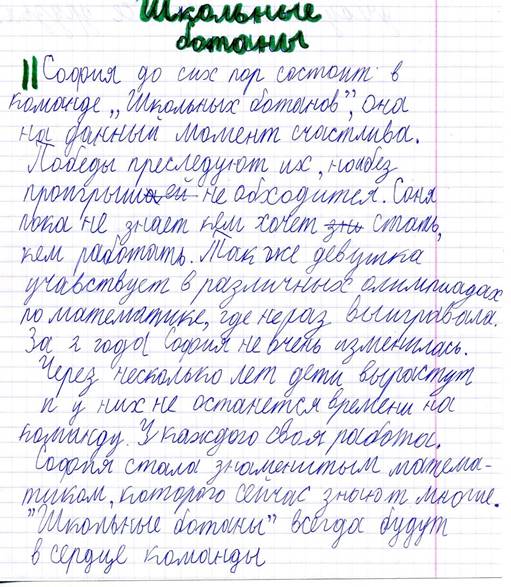 Школьные
ботаны
София до сих пор состоит в
команде „Школьных ботанов”, она
на данный момент счастлива.
Победы преследуют их, но и без
проигрышей не обходится. Соня
пока не знает кем хочет стать,
кем работать. Так же девушка
учавствует в различных олимпиадах
по математике, где не раз выигравала.
За 2 года София не очень изменилась.
Через несколько лет дети вырастут
и у них не останется времени на
команду. У каждого своя работа.
София стала знаменитым матема-
тиком, которого сейчас знают многие.
"Школьные ботаны" всегда будут
в сердце команды